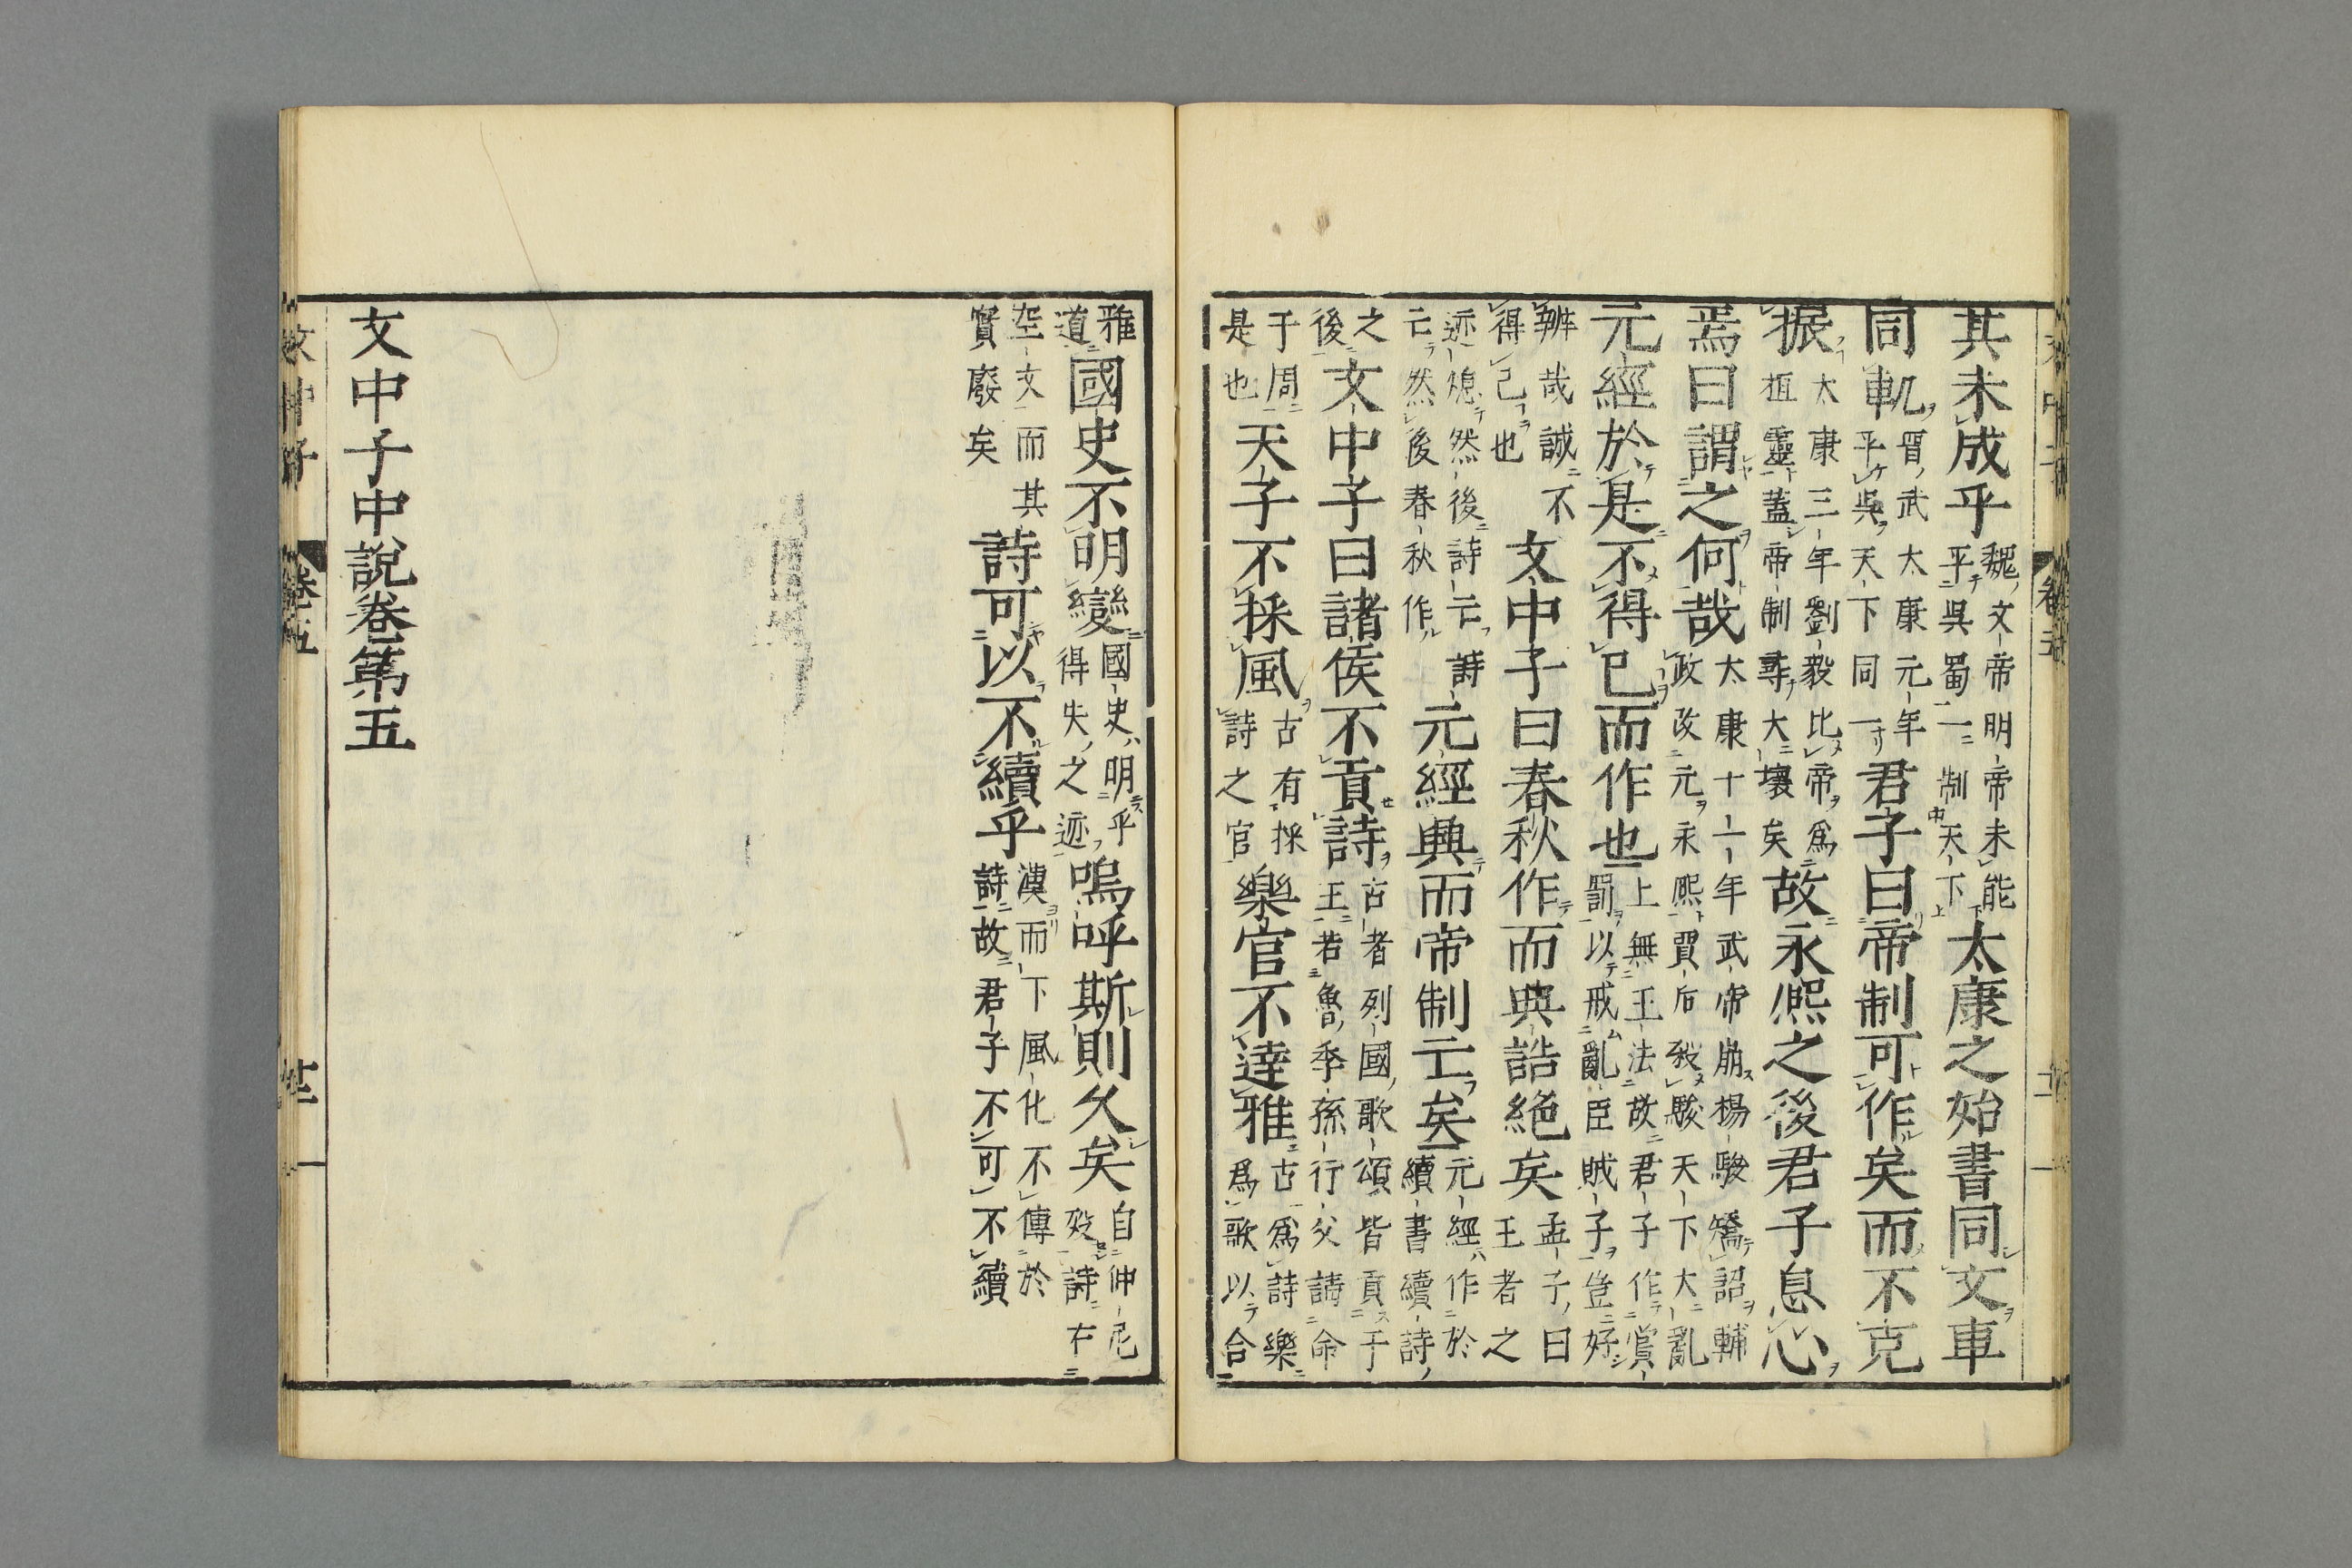 其未成乎魏文帝明帝未能平吳蜀一制天下太康之始書同文車
同軌晋武太康元年平吳天下同一君子曰帝制可作矣而不克
振太康三年劉毅比帝為桓靈蓋帝制尋大壞矣故永熈之後君子息心
焉曰謂之何哉太康十一年武帝崩楊駿矯詔輔政改元永熈賈后殺駿天下大亂
元經於是不得已而作也上無王法故君子作賞罰以戒亂臣賊子豈好
辨哉誠不得已也文中子曰春秋作而典誥絕矣孟子曰王者之
迹熄然後詩亡詩亡然後春秋作元經興而帝制亡矣元經作於續書續詩
之後文中子曰諸侯不貢詩古者列國歌頌皆貢于王若魯季孫行父請命
于周是也天子不採風古有採詩之官樂官不達雅古爲詩樂爲歌以合
雅道國史不明變國史明乎得失之迹嗚呼斯則久矣自仲尼歿詩在
空文而其實廢矣詩可以不續乎漢而下風化不傳於詩故君子不可不續
文中子中說卷第五
文中子 卷五